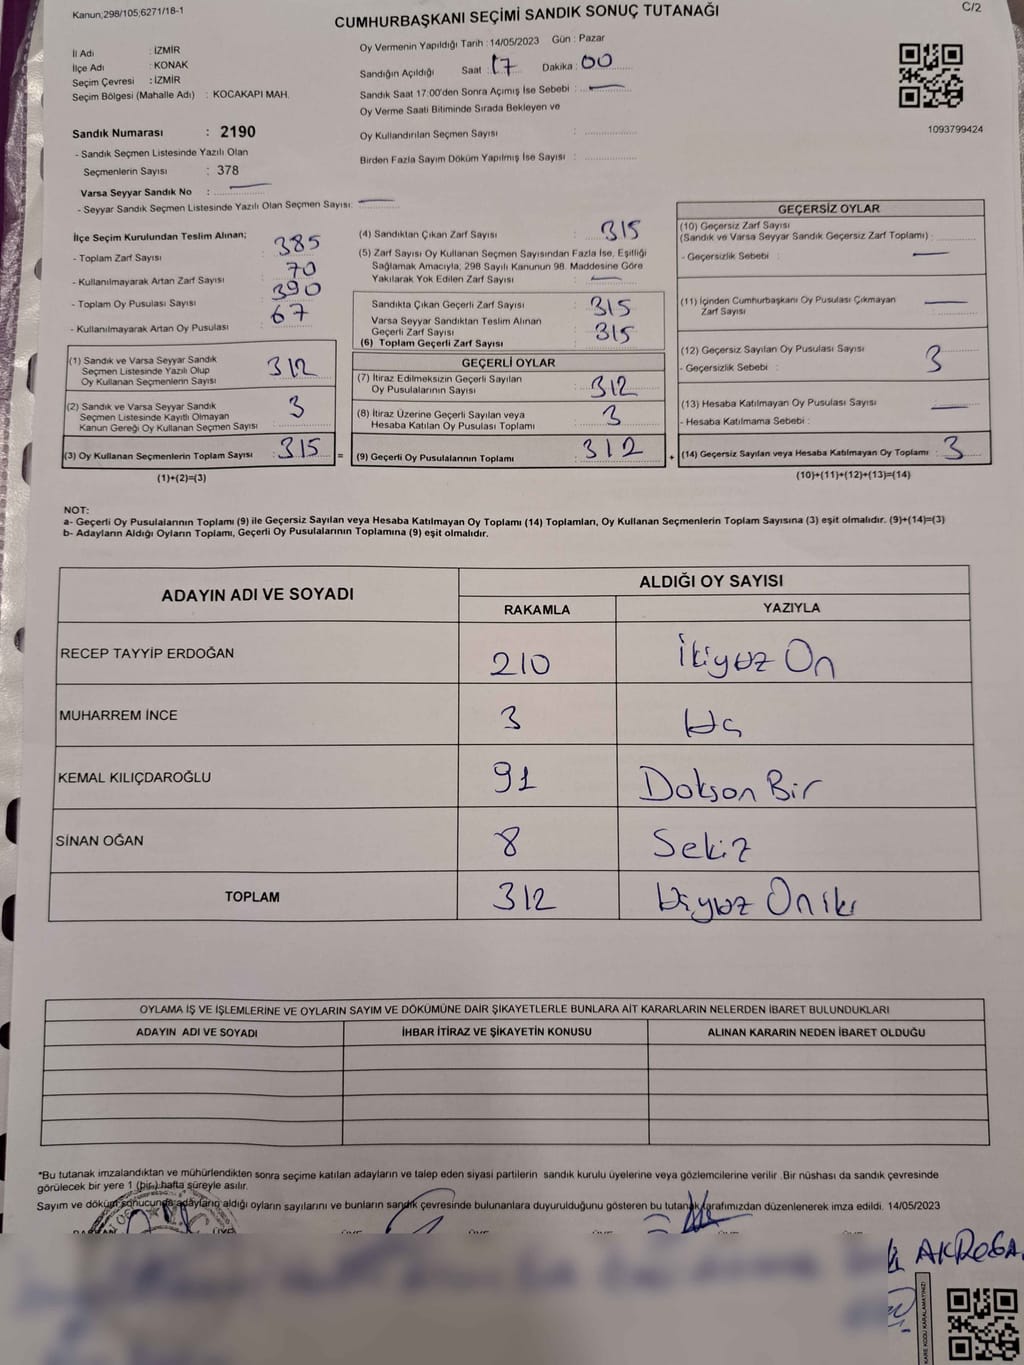 Kanun;298/105;6271/18-1
C/2
CUMHURBAŞKANI SEÇİMİ SANDIK SONUÇ TUTANAĞI
İl Adı : İZMİR
İlçe Adı : KONAK
Seçim Çevresi : İZMİR
Seçim Bölgesi (Mahalle Adı) : KOCAKAPI MAH.
Oy Vermenin Yapıldığı Tarih : 14/05/2023 Gün : Pazar
Sandığın Açıldığı Saat : 17 Dakika : 00
Sandık Saat 17:00'den Sonra Açımış İse Sebebi : —
Oy Verme Saati Bitiminde Sırada Bekleyen ve
Oy Kullandırılan Seçmen Sayısı :
Birden Fazla Sayım Döküm Yapılmış İse Sayısı :
1093799424
Sandık Numarası : 2190
- Sandık Seçmen Listesinde Yazılı Olan
Seçmenlerin Sayısı : 378
Varsa Seyyar Sandık No : —
- Seyyar Sandık Seçmen Listesinde Yazılı Olan Seçmen Sayısı: —
İlçe Seçim Kurulundan Teslim Alınan;
- Toplam Zarf Sayısı : 385
- Kullanılmayarak Artan Zarf Sayısı : 70
- Toplam Oy Pusulası Sayısı : 390
- Kullanılmayarak Artan Oy Pusulası : 67
(1) Sandık ve Varsa Seyyar Sandık
Seçmen Listesinde Yazılı Olup
Oy Kullanan Seçmenlerin Sayısı : 312
(2) Sandık ve Varsa Seyyar Sandık
Seçmen Listesinde Kayıtlı Olmayan
Kanun Gereği Oy Kullanan Seçmen Sayısı : 3
(3) Oy Kullanan Seçmenlerin Toplam Sayısı : 315
(1)+(2)=(3)
(4) Sandıktan Çıkan Zarf Sayısı : 315
(5) Zarf Sayısı Oy Kullanan Seçmen Sayısından Fazla İse, Eşitliği
Sağlamak Amacıyla; 298 Sayılı Kanunun 98. Maddesine Göre
Yakılarak Yok Edilen Zarf Sayısı : —
Sandıkta Çıkan Geçerli Zarf Sayısı : 315
Varsa Seyyar Sandıktan Teslim Alınan
Geçerli Zarf Sayısı : 315
(6) Toplam Geçerli Zarf Sayısı :
GEÇERLİ OYLAR
(7) İtiraz Edilmeksizin Geçerli Sayılan
Oy Pusulalarının Sayısı : 312
(8) İtiraz Üzerine Geçerli Sayılan veya
Hesaba Katılan Oy Pusulası Toplamı : 3
= (9) Geçerli Oy Pusulalarının Toplamı : 312
GEÇERSİZ OYLAR
(10) Geçersiz Zarf Sayısı
(Sandık ve Varsa Seyyar Sandık Geçersiz Zarf Toplamı) :
- Geçersizlik Sebebi : —
(11) İçinden Cumhurbaşkanı Oy Pusulası Çıkmayan
Zarf Sayısı : —
(12) Geçersiz Sayılan Oy Pusulası Sayısı : 3
- Geçersizlik Sebebi :
(13) Hesaba Katılmayan Oy Pusulası Sayısı : —
- Hesaba Katılmama Sebebi :
+ (14) Geçersiz Sayılan veya Hesaba Katılmayan Oy Toplamı : 3
(10)+(11)+(12)+(13)=(14)
NOT:
a- Geçerli Oy Pusulalarının Toplamı (9) ile Geçersiz Sayılan veya Hesaba Katılmayan Oy Toplamı (14) Toplamları, Oy Kullanan Seçmenlerin Toplam Sayısına (3) eşit olmalıdır. (9)+(14)=(3)
b- Adayların Aldığı Oyların Toplamı, Geçerli Oy Pusulalarının Toplamına (9) eşit olmalıdır.
ADAYIN ADI VE SOYADI
ALDIĞI OY SAYISI
RAKAMLA YAZIYLA
RECEP TAYYİP ERDOĞAN 210 İkiyüz On
MUHARREM İNCE 3 Üç
KEMAL KILIÇDAROĞLU 91 Doksan Bir
SİNAN OĞAN 8 Sekiz
TOPLAM 312 Üçyüz Oniki
OYLAMA İŞ VE İŞLEMLERİNE VE OYLARIN SAYIM VE DÖKÜMÜNE DAİR ŞİKAYETLERLE BUNLARA AİT KARARLARIN NELERDEN İBARET BULUNDUKLARI
ADAYIN ADI VE SOYADI İHBAR İTİRAZ VE ŞİKAYETİN KONUSU ALINAN KARARIN NEDEN İBARET OLDUĞU
*Bu tutanak imzalandıktan ve mühürlendikten sonra seçime katılan adayların ve talep eden siyasi partilerin sandık kurulu üyelerine veya gözlemcilerine verilir .Bir nüshası da sandık çevresinde
görülecek bir yere 1 (bir) hafta süreyle asılır.
Sayım ve döküm sonucunda adayların aldığı oyların sayılarını ve bunların sandık çevresinde bulunanlara duyurulduğunu gösteren bu tutanak tarafımızdan düzenlenerek imza edildi. 14/05/2023